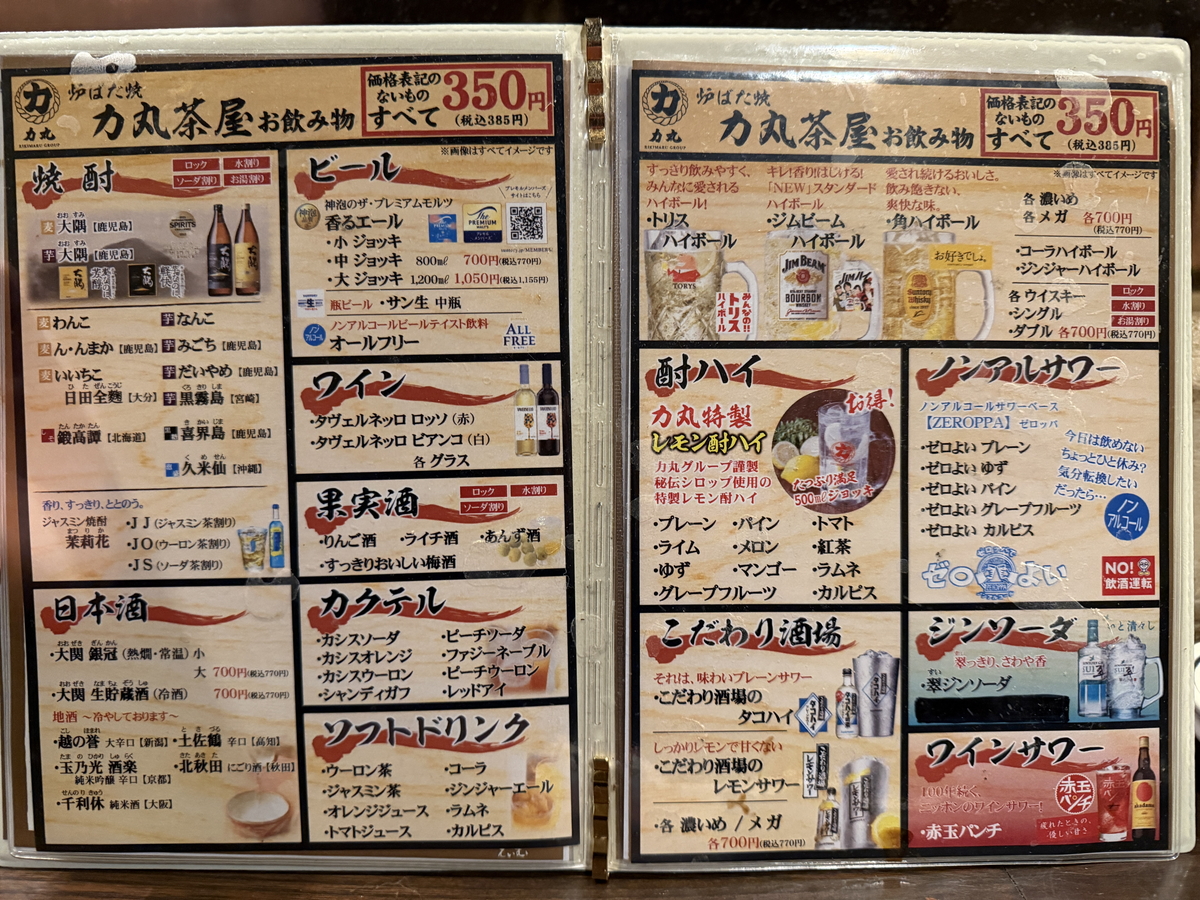 炉ばた焼
力丸茶屋お飲み物
力丸
RIKIMARU GROUP
価格表記の
ないもの
すべて
350円
(税込385円)
焼酎
ロック
水割り
ソーダ割り
お湯割り
麦 大隅【鹿児島】
芋 大隅【鹿児島】
麦 わんこ
芋 なんこ
麦 ん・んまか【鹿児島】
芋 みごち【鹿児島】
麦 いいちこ
日田全麹【大分】
芋 だいやめ【鹿児島】
芋 黒霧島【宮崎】
鍛高譚【北海道】
喜界島【鹿児島】
久米仙【沖縄】
香り、すっきり、ととのう。
ジャスミン焼酎
茉莉花
・JJ(ジャスミン茶割)
・JO(ウーロン茶割)
・JS(ソーダ茶割)
日本酒
・大関 銀冠(熱燗・常温)小
大 700円(税込770円)
・大関 生貯蔵酒(冷酒) 700円(税込770円)
地酒 〜冷やしております〜
・越の誉 大辛口【新潟】
・土佐鶴 辛口【高知】
・玉乃光 酒楽
純米吟醸 辛口【京都】
・北秋田 にごり酒【秋田】
・千利休 純米酒【大阪】
ビール
※画像はすべてイメージです
プレモルメンバーズ
サイトはこちら
神泡のザ・プレミアムモルツ
香るエール
・小 ジョッキ
・中 ジョッキ 800㎖ 700円(税込770円)
・大 ジョッキ 1,200㎖ 1,050円(税込1,155円)
瓶ビール ・サン生 中瓶
ノン
アルコール
ノンアルコールビールテイスト飲料
オールフリー
ALL
FREE
ワイン
・タヴェルネッロ ロッソ(赤)
・タヴェルネッロ ビアンコ(白)
各 グラス
果実酒
ロック
水割り
ソーダ割り
・りんご酒 ・ライチ酒 ・あんず酒
・すっきりおいしい梅酒
カクテル
・カシスソーダ
・カシスオレンジ
・カシスウーロン
・シャンディガフ
・ピーチソーダ
・ファジーネーブル
・ピーチウーロン
・レッドアイ
ソフトドリンク
・ウーロン茶
・ジャスミン茶
・オレンジジュース
・トマトジュース
・コーラ
・ジンジャーエール
・ラムネ
・カルピス
炉ばた焼
力丸茶屋お飲み物
力丸
RIKIMARU GROUP
価格表記の
ないもの
すべて
350円
(税込385円)
※画像はすべてイメージです
すっきり飲みやすく、
みんなに愛される
ハイボール!
・トリス
ハイボール
TORYS
みんなの!!
トリス
ハイボール
キレ!香り!はじける!
「NEW」スタンダード
ハイボール
・ジムビーム
ハイボール
JIM BEAM
BOURBON
WHISKEY
愛され続けるおいしさ。
飲み飽きない。
爽快な味。
・角ハイボール
お好きでしょ。
各 濃いめ
各 メガ 各700円
(税込770円)
・コーラハイボール
・ジンジャーハイボール
各 ウイスキー
・シングル
・ダブル 各700円(税込770円)
ロック
水割り
お湯割り
酎ハイ
力丸特製
レモン酎ハイ
力丸グループ謹製
秘伝シロップ使用の
特製レモン酎ハイ
お得!
たっぷり満足
500㎖ジョッキ
・プレーン ・パイン ・トマト
・ライム ・メロン ・紅茶
・ゆず ・マンゴー ・ラムネ
・グレープフルーツ ・カルピス
こだわり酒場
それは、味わいプレーンサワー
・こだわり酒場の
タコハイ
しっかりレモンで甘くない
・こだわり酒場の
レモンサワー
・各 濃いめ / メガ
各700円(税込770円)
ノンアルサワー
ノンアルコールサワーベース
【ZEROPPA】ゼロッパ
・ゼロよい プレーン
・ゼロよい ゆず
・ゼロよい パイン
・ゼロよい グレープフルーツ
・ゼロよい カルピス
今日は飲めない
ちょっとひと休み?
気分転換したい
だったら…
ノン
アルコール
ゼロよい
NO!
飲酒運転
ジンソーダ
翠っきり、さわや香
・翠ジンソーダ
ワインサワー
100年続く、
ニッポンのワインサワー!
・赤玉パンチ
赤玉
パンチ
疲れたときの、
優しい甘さ